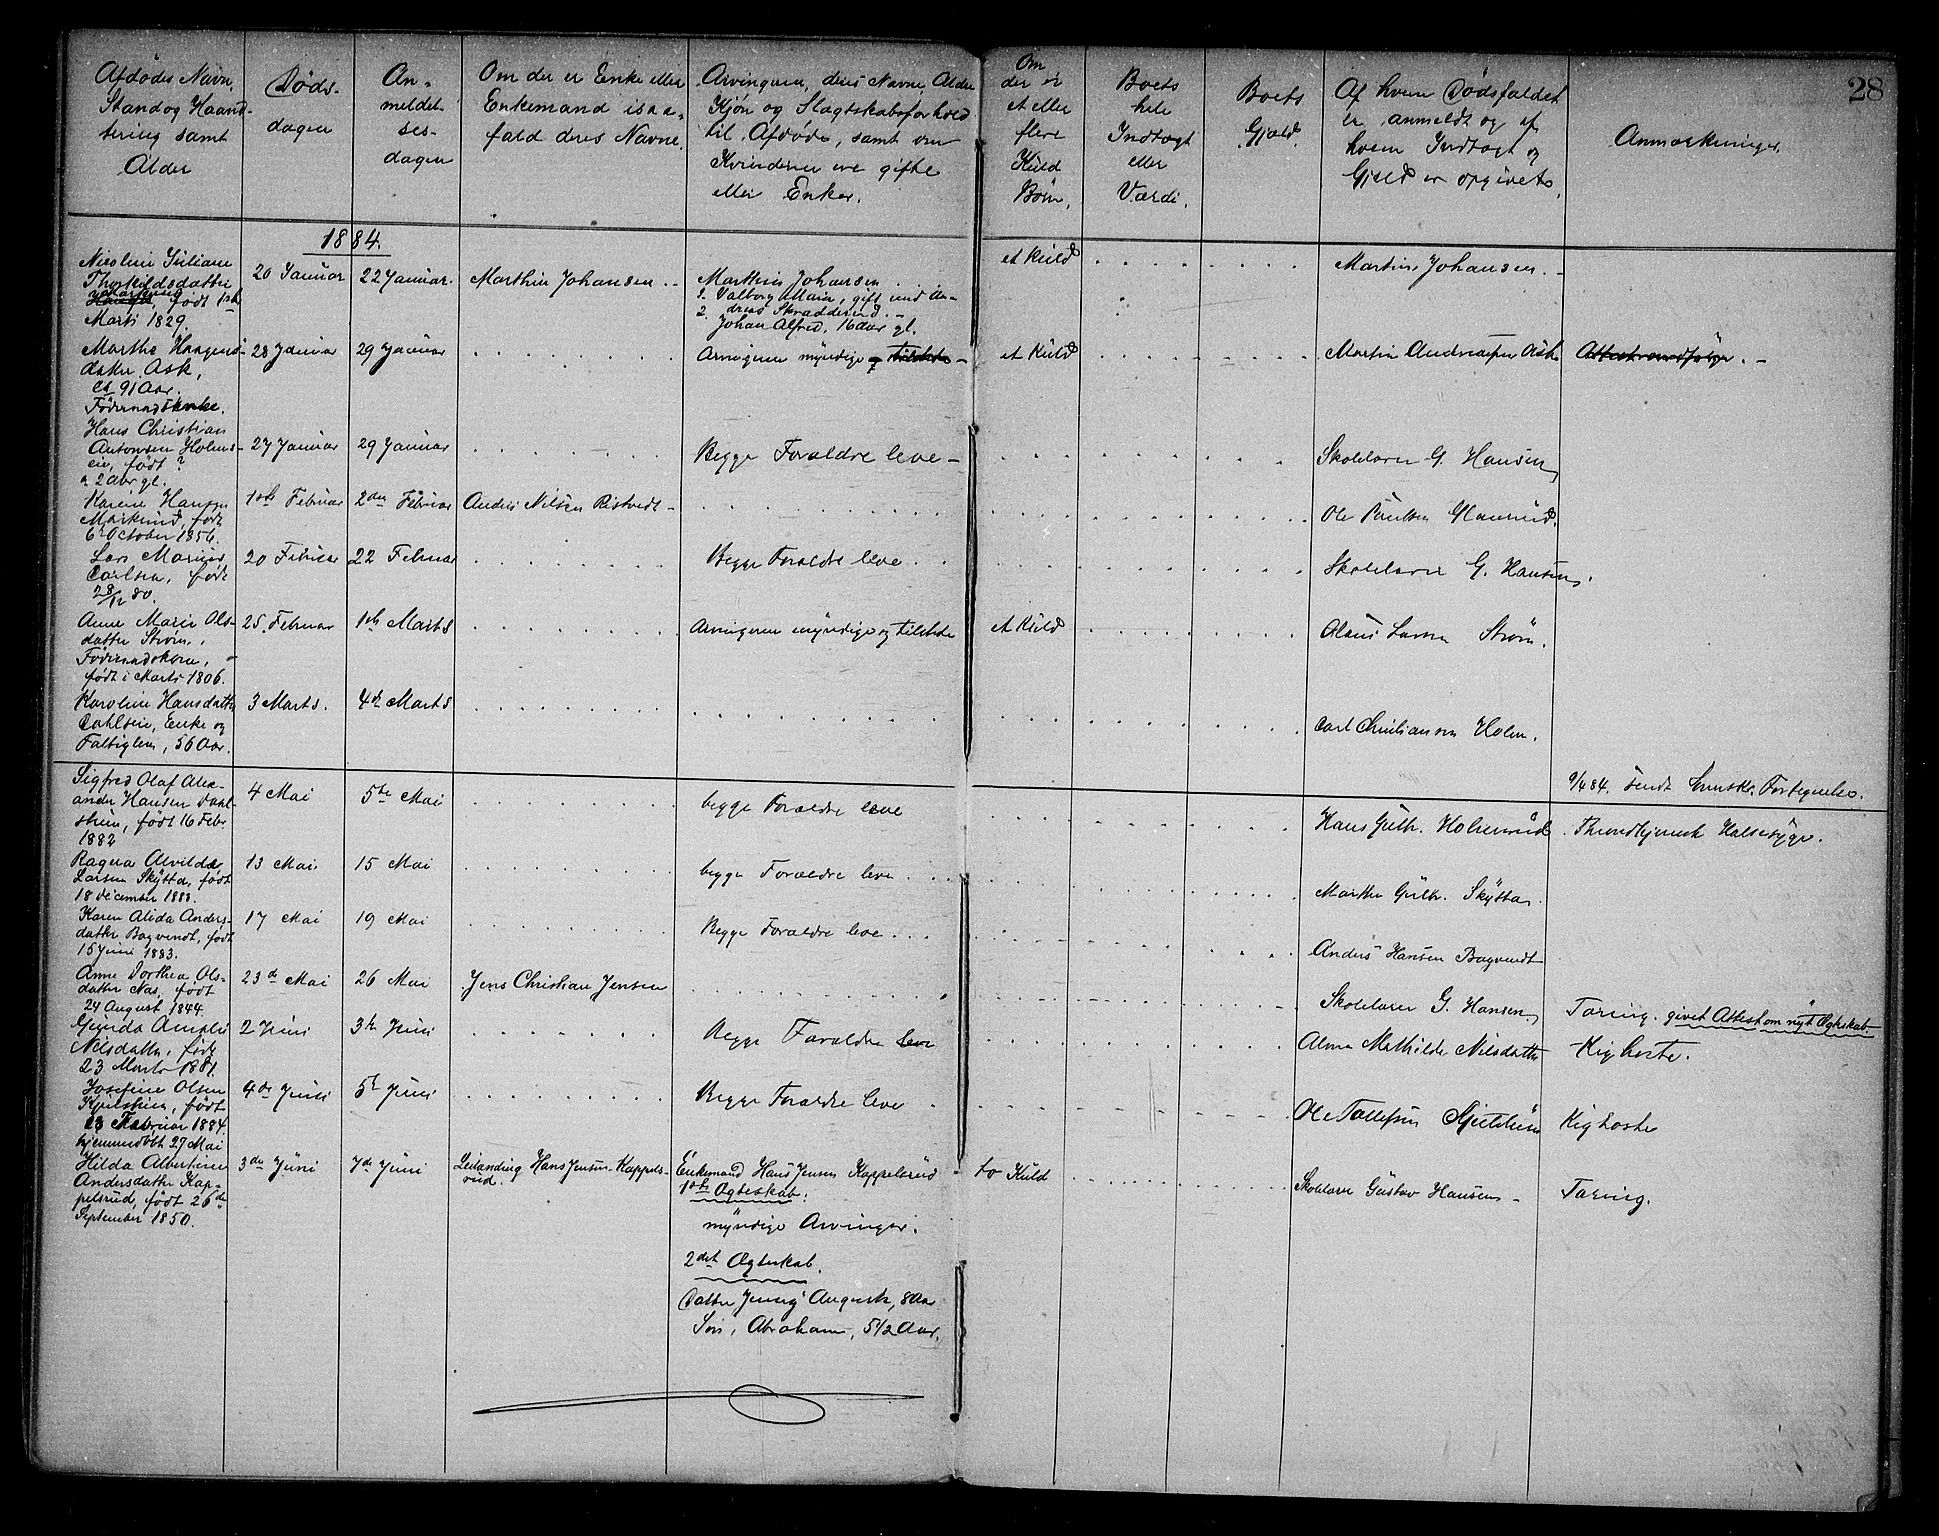 28
Afdødes Navn,
Stand og Haand-
tering samt
Alder
Døds-
dagen
An-
meldel-
ses-
dagen
Om der er Enke eller
Enkemand i saa-
fald deres Navne.
Arvingerne, deres Navne, Alder
Kjøn og Slagtskabsforhold
til Afdøde, samt om
Kvinderne ere gifte
eller Enker.
Om
der er
et eller
flere
Kuld
Børn.
Boets
hele
Indtægt
eller
Værdi.
Boets
Gjæld.
Af hvem Dødsfaldet
er anmeldt og af
hvem Indtægt og
Gjeld er opgivet.
Anmærkninger.
1884.
Nicoline Juliane
Thorkildsdatter
født 1ste
Marts 1829.
20 Januar
22 Januar.
Marthin Johansen
Marthin Johansen
1. Valborg Marie, gift med An-
dreas Skrædderud.
2. Johan Alfred, 16 Aar gl.
et Kuld
Martin Johansen.
Marthe Haagens-
datter Ask,
ca 91 Aar.
Føderaadsenke.
28 Januar
29 Januar
Arvingerne myndige
et Kuld
Martin Andreasen Ask
Hans Christian
Antonsen Holms-
en, født ?
2 Aar gl.
27 Januar
29 Januar
Begge Forældre leve
Skolelærer G. Hansen
Karine Hansen
født
6 October 1856.
1ste Februar
2den Februar
Andrs Nilsen Ristvedt
Ole Paulsen
Lars Marius
Carlsen, født
28/12 80.
20 Februar
22 Februar
Begge Forældre leve
Skolelærer G. Hansen.
Anne Marie Ols-
datter Strøm,
Føderaadskone,
født i Marts 1806.
25. Februar
1ste Marts
Arvingerne myndige og tilstede
et Kuld
Olaus Larsen Strøm.
Karoline Hansdatter
Dahlseie, Enke og
Fattiglem, 56 Aar.
3 Marts.
4de Marts
Carl Christiansen Holm.
9/4 84. Sendt Fortegnelse.
Sigfred Olaf Alex-
ander Hansen Dahl-
født 16 Febr.
1882
4 Mai
5te Mai
begge Forældre leve
Hans Gulbr. Holmerud
Throndhjemsk Halssyge.
Ragna Alvilde
Larsen Skytta, født
18 December 1883.
13 Mai
15 Mai
begge Forældre leve
Marthe Gulbr. Skytta.
Karen Alida Anders-
datter Bagvendt, født
15 Juni 1883.
17 Mai
19 Mai
Begge Forældre leve
Anders Hansen Bagvendt
Anne Dorthea Ols-
datter Næs, født
24 August 1844.
23de Mai
26 Mai
Jens Christian Jensen
Skolelærer G. Hansen
Tæring. givet Attest om nyt Ægteskab.
Gunda Amalie
Nilsdatter, født
23 Marts 1881.
2 Juni
3de Juni
Begge Forældre leve
Alma Mathilde Nilsdatter
Kighoste.
Josefine Olsen
født
Februar 1884.
hjemmedøbt 27 Mai
4de Juni
5te Juni
Begge Forældre leve
Ole Tollefsen
Kighoste
Hilda Albertine
Andersdatter Kap-
pelsrud, født 26de
September 1850.
3die Juni
7de Juni
Leilænding Hans Jensen Kappels-
rud.
Enkemand Hans Jensen Kappelsrud
1ste Ægteskab:
myndige Arvinger.
2det Ægteskab.
Datter Jenny Auguste, 8 Aar
Søn, Abraham, 5 1/2 Aar.
to Kuld
Skolelærer Gustav Hansen
Tæring.